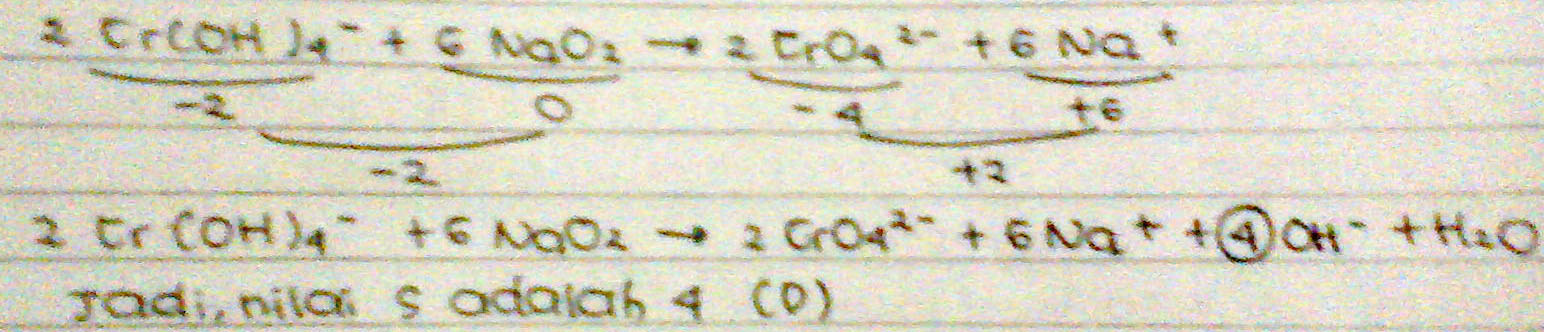 2 Cr(OH)₄⁻ + 6 NaO₂ → 2 CrO₄²⁻ + 6 Na⁺
-2 0 -4 +6
-2 +2
2 Cr(OH)₄⁻ + 6 NaO₂ → 2 CrO₄²⁻ + 6 Na⁺ + 4 OH⁻ + H₂O
Jadi, nilai s adalah 4 (D)